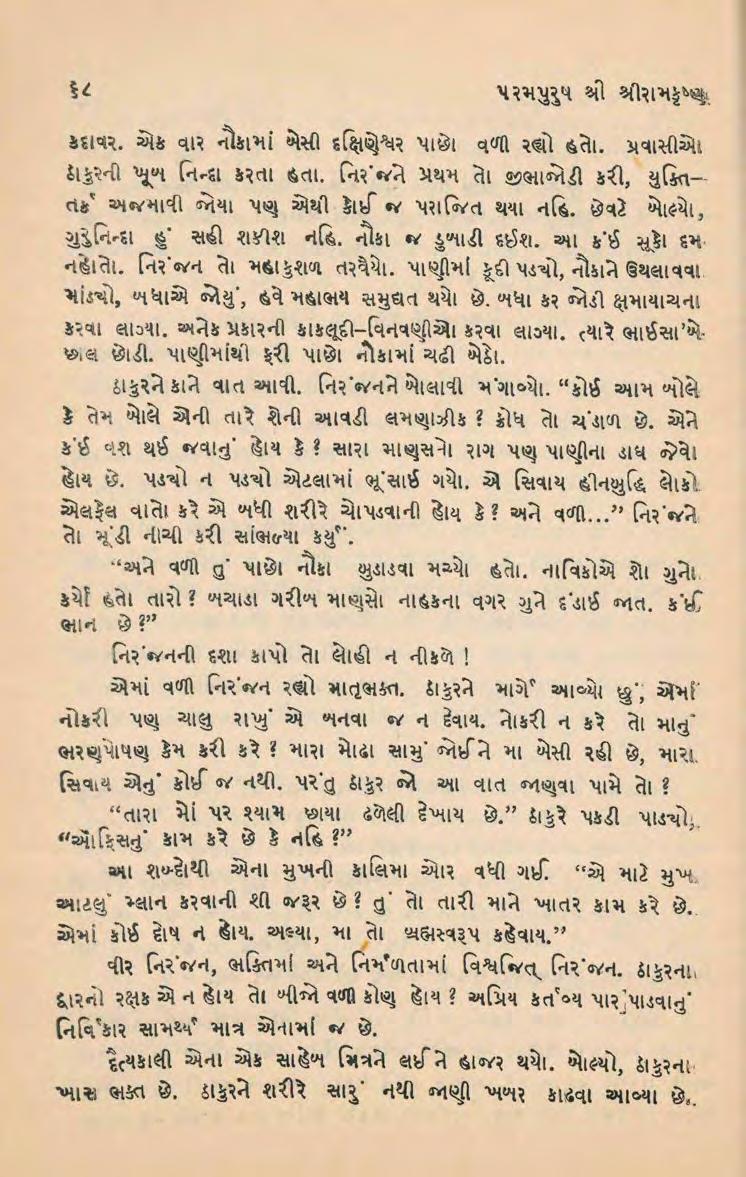 ૬૮ પરમપુરુષ શ્રી શ્રીરામકૃષ્ણ
કદાવર. એક વાર નૌકામાં બેસી દક્ષિણેશ્વર પાછો વળી રહ્યો હતો. પ્રવાસીઓ
ઠાકુરની ખૂબ નિન્દા કરતા હતા. નિરંજને પ્રથમ તો જીભાજોડી કરી, યુક્તિ–
તર્ક અજમાવી જોયા પણ એથી કોઈ જ પરાજિત થયા નહિ. છેવટે બોલ્યો,
ગુરુનિન્દા હું સહી શકીશ નહિ. નૌકા જ ડુબાડી દઈશ. આ કંઈ સૂકો દમ
નહોતો. નિરંજન તો મહાકુશળ તરવૈયો. પાણીમાં કૂદી પડચો, નૌકાને ઉથલાવવા
માંડ્યો, બધાએ જોયું, હવે મહાભય સમુદ્યત થયો છે. બધા કર જોડી ક્ષમાયાચના
કરવા લાગ્યા. અનેક પ્રકારની કાકલૂદી–વિનવણીઓ કરવા લાગ્યા. ત્યારે ભાઈસા'બે
છાલ છોડી. પાણીમાંથી ફરી પાછો નૌકામાં ચઢી બેઠો.
ઠાકુરને કાને વાત આવી. નિરંજનને બોલાવી મંગાવ્યો. “કોઈ આમ બોલે
કે તેમ બોલે એની તારે શેની આવડી લમણાઝીક ? ક્રોધ તો ચંડાળ છે. એને
કંઈ વશ થઈ જવાનું હોય કે ? સારા માણસનો રાગ પણ પાણીના ડાઘ જેવો
હોય છે. પડચો ન પડચો એટલામાં ભૂંસાઈ ગયો. એ સિવાય હીનબુદ્ધિ લોકો
એલફેલ વાતો કરે એ બધી શરીરે ચોપડવાની હોય કે ? અને વળી...” નિરંજને
તો મૂંડી નીચી કરી સાંભળ્યા કર્યું.
“અને વળી તું પાછો નૌકા બુડાડવા મચ્યો હતો. નાવિકોએ શો ગુનો
કર્યો હતો તારો ? બચાડા ગરીબ માણસો નાહકના વગર ગુને દંડાઈ જાત. કંઈ
ભાન છે ?”
નિરંજનની દશા કાપો તો લોહી ન નીકળે !
એમાં વળી નિરંજન રહ્યો માતૃભક્ત. ઠાકુરને માર્ગે આવ્યો છું, એમાં
નોકરી પણ ચાલુ રાખું એ બનવા જ ન દેવાય. નોકરી ન કરે તો માનું
ભરણપોષણ કેમ કરી કરે ? મારા મોઢા સામું જોઈને મા બેસી રહી છે, મારા
સિવાય એનું કોઈ જ નથી. પરંતુ ઠાકુર જો આ વાત જાણવા પામે તો ?
“તારા મોં પર શ્યામ છાયા ઢળેલી દેખાય છે.” ઠાકુરે પકડી પાડચો,
“ઑફિસનું કામ કરે છે કે નહિ ?”
આ શબ્દોથી એના મુખની કાલિમા ઓર વધી ગઈ. “એ માટે મુખ
આટલું મ્લાન કરવાની શી જરૂર છે ? તું તો તારી માને ખાતર કામ કરે છે.
એમાં કોઈ દોષ ન હોય. અલ્યા, મા તો બ્રહ્મસ્વરૂપ કહેવાય.”
વીર નિરંજન, ભક્તિમાં અને નિર્મળતામાં વિશ્વજિત્ નિરંજન. ઠાકુરના
દ્વારનો રક્ષક એ ન હોય તો બીજો વળી કોણ હોય ? અપ્રિય કર્તવ્ય પાર પાડવાનું
નિર્વિકાર સામર્થ્ય માત્ર એનામાં જ છે.
દૈત્યકાલી એના એક સાહેબ મિત્રને લઈને હાજર થયો. બોલ્યો, ઠાકુરના
ખાસ ભક્ત છે. ઠાકુરને શરીરે સારું નથી જાણી ખબર કાઢવા આવ્યા છે.